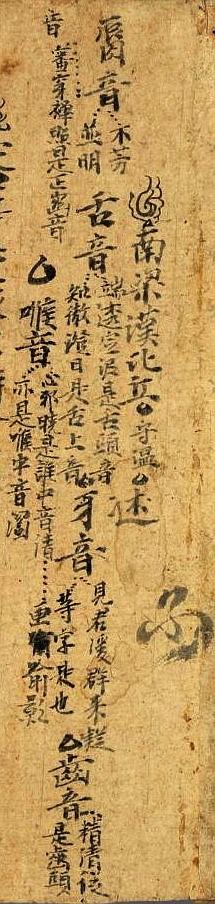 南梁漢比丘守溫述
脣音 不芳
並明
舌音 端透定泥是舌頭音
知徹澄日是舌上音
牙音 見君溪群來疑
等字是也
齒音 精清從
是齒頭
音 審穿禪照是正齒音
喉音 心邪曉是喉中音清
匣喻影
亦是喉中音濁